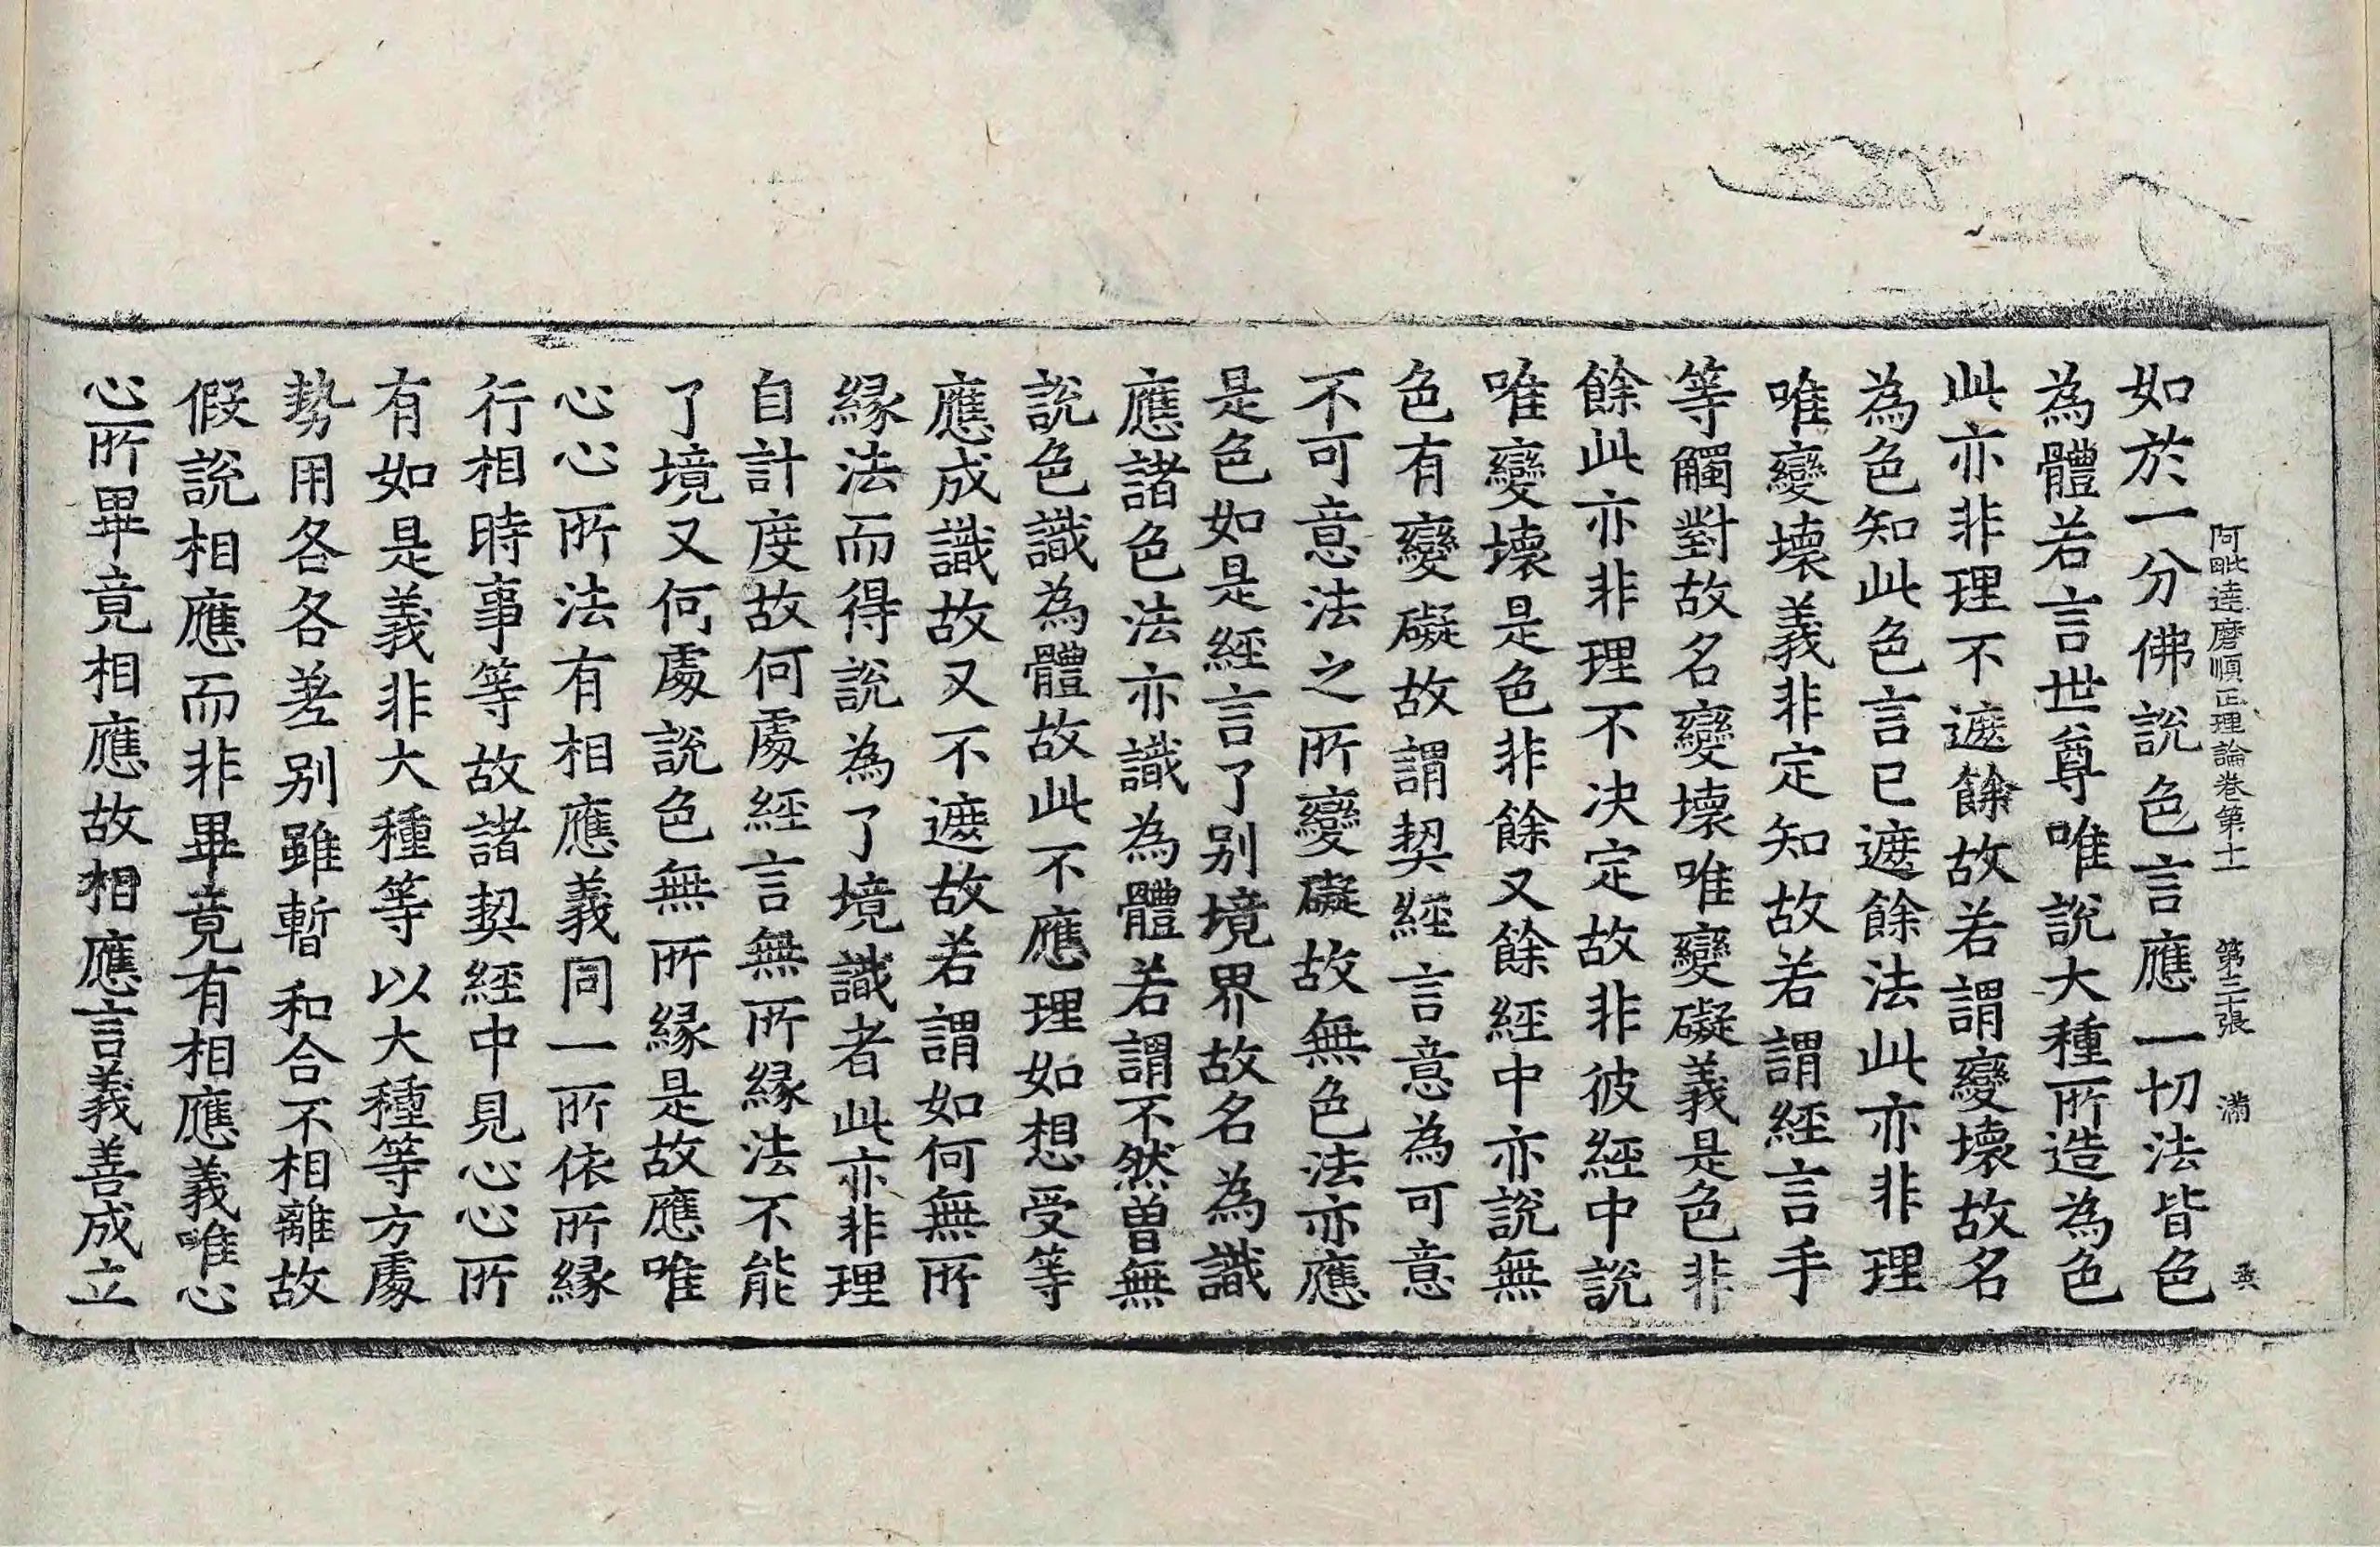 阿毗達磨順正理論卷第十一　第三十張　滿
如於一分佛說色言應一切法皆色
為體若言世尊唯說大種所造為色
此亦非理不遮餘故若謂變壞故名
為色知此色言已遮餘法此亦非理
唯變壞義非定知故若謂經言手
等觸對故名變壞唯變礙義是色非
餘此亦非理不决定故非彼經中說
唯變壞是色非餘又餘經中亦說無
色有變礙故謂契經言意為可意
不可意法之所變礙故無色法亦應
是色如是經言了别境界故名為識
應諸色法亦識為體若謂不然曽無
說色識為體故此不應理如想受等
應成識故又不遮故若謂如何無所
緣法而得說為了境識者此亦非理
自計度故何處經言無所緣法不能
了境又何處說色無所緣是故應唯
心心所法有相應義同一所依所緣
行相時事等故諸契經中見心心所
有如是義非大種等以大種等方處
勢用各各差别雖暫和合不相離故
假說相應而非畢竟有相應義唯心
心所畢竟相應故相應言義善成立